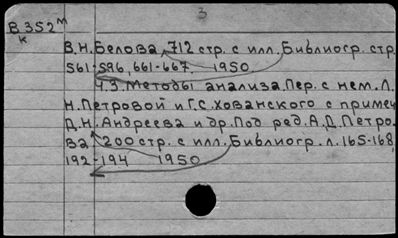 3
В 352 м
к
В.Н. Белова, 712 стр. с илл., Библиогр. стр.
561-596, 661-667. 1950
Ч.3. Методы анализа. Пер. с нем. Л.
Н. Петровой и Г.С. Хованского с примеч.
Д.Н. Андреева и др. Под ред. А.Д. Петро-
ва 200 стр. с илл. Библиогр. л. 165-168,
192-194 1950